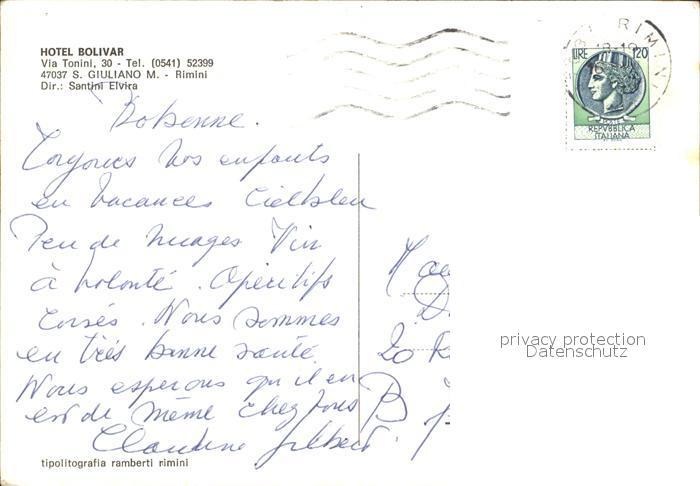 HOTEL BOLIVAR
Via Tonini, 30 - Tel. (0541) 52399
47037 S. GIULIANO M. - Rimini
Dir.: Santini Elvira
RIMINI
LIRE 120
REPVBBLICA
ITALIANA
Toujours vos enfants
en vacances Ciel bleu
Peu de nuages Vin
à volonté. Apéritifs
corsés. Nous sommes
en très bonne santé.
Nous espérons qu'il en
est de même chez vous
Claudine Gilbert.
20 R
B
privacy protection
Datenschutz
tipolitografia ramberti rimini